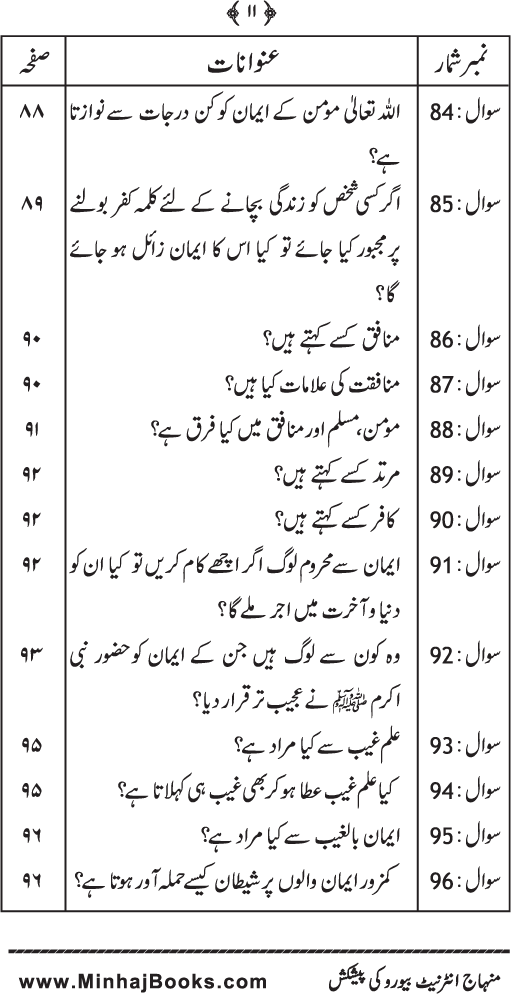 ﴿ ۱۱ ﴾
نمبر شمار عنوانات صفحہ
سوال : 84 اللہ تعالیٰ مؤمن کے ایمان کو کن درجات سے نوازتا ۸۸
ہے؟
سوال : 85 اگر کسی شخص کو زندگی بچانے کے لئے کلمہ کفر بولنے ۸۹
پر مجبور کیا جائے تو کیا اس کا ایمان زائل ہو جائے
گا؟
سوال : 86 منافق کسے کہتے ہیں؟ ۹۰
سوال : 87 منافقت کی علامات کیا ہیں؟ ۹۰
سوال : 88 مؤمن، مسلم اور منافق میں کیا فرق ہے؟ ۹۱
سوال : 89 مرتد کسے کہتے ہیں؟ ۹۲
سوال : 90 کافر کسے کہتے ہیں؟ ۹۲
سوال : 91 ایمان سے محروم لوگ اگر اچھے کام کریں تو کیا ان کو ۹۲
دنیا و آخرت میں اجر ملے گا؟
سوال : 92 وہ کون سے لوگ ہیں جن کے ایمان کو حضور نبی ۹۳
اکرم ﷺ نے عجیب تر قرار دیا؟
سوال : 93 علم غیب سے کیا مراد ہے؟ ۹۵
سوال : 94 کیا علم غیب عطا ہو کر بھی غیب ہی کہلاتا ہے؟ ۹۵
سوال : 95 ایمان بالغیب سے کیا مراد ہے؟ ۹۶
سوال : 96 کمزور ایمان والوں پر شیطان کیسے حملہ آور ہوتا ہے؟ ۹۶
منہاج انٹرنیٹ بیورو کی پیشکش www.MinhajBooks.com